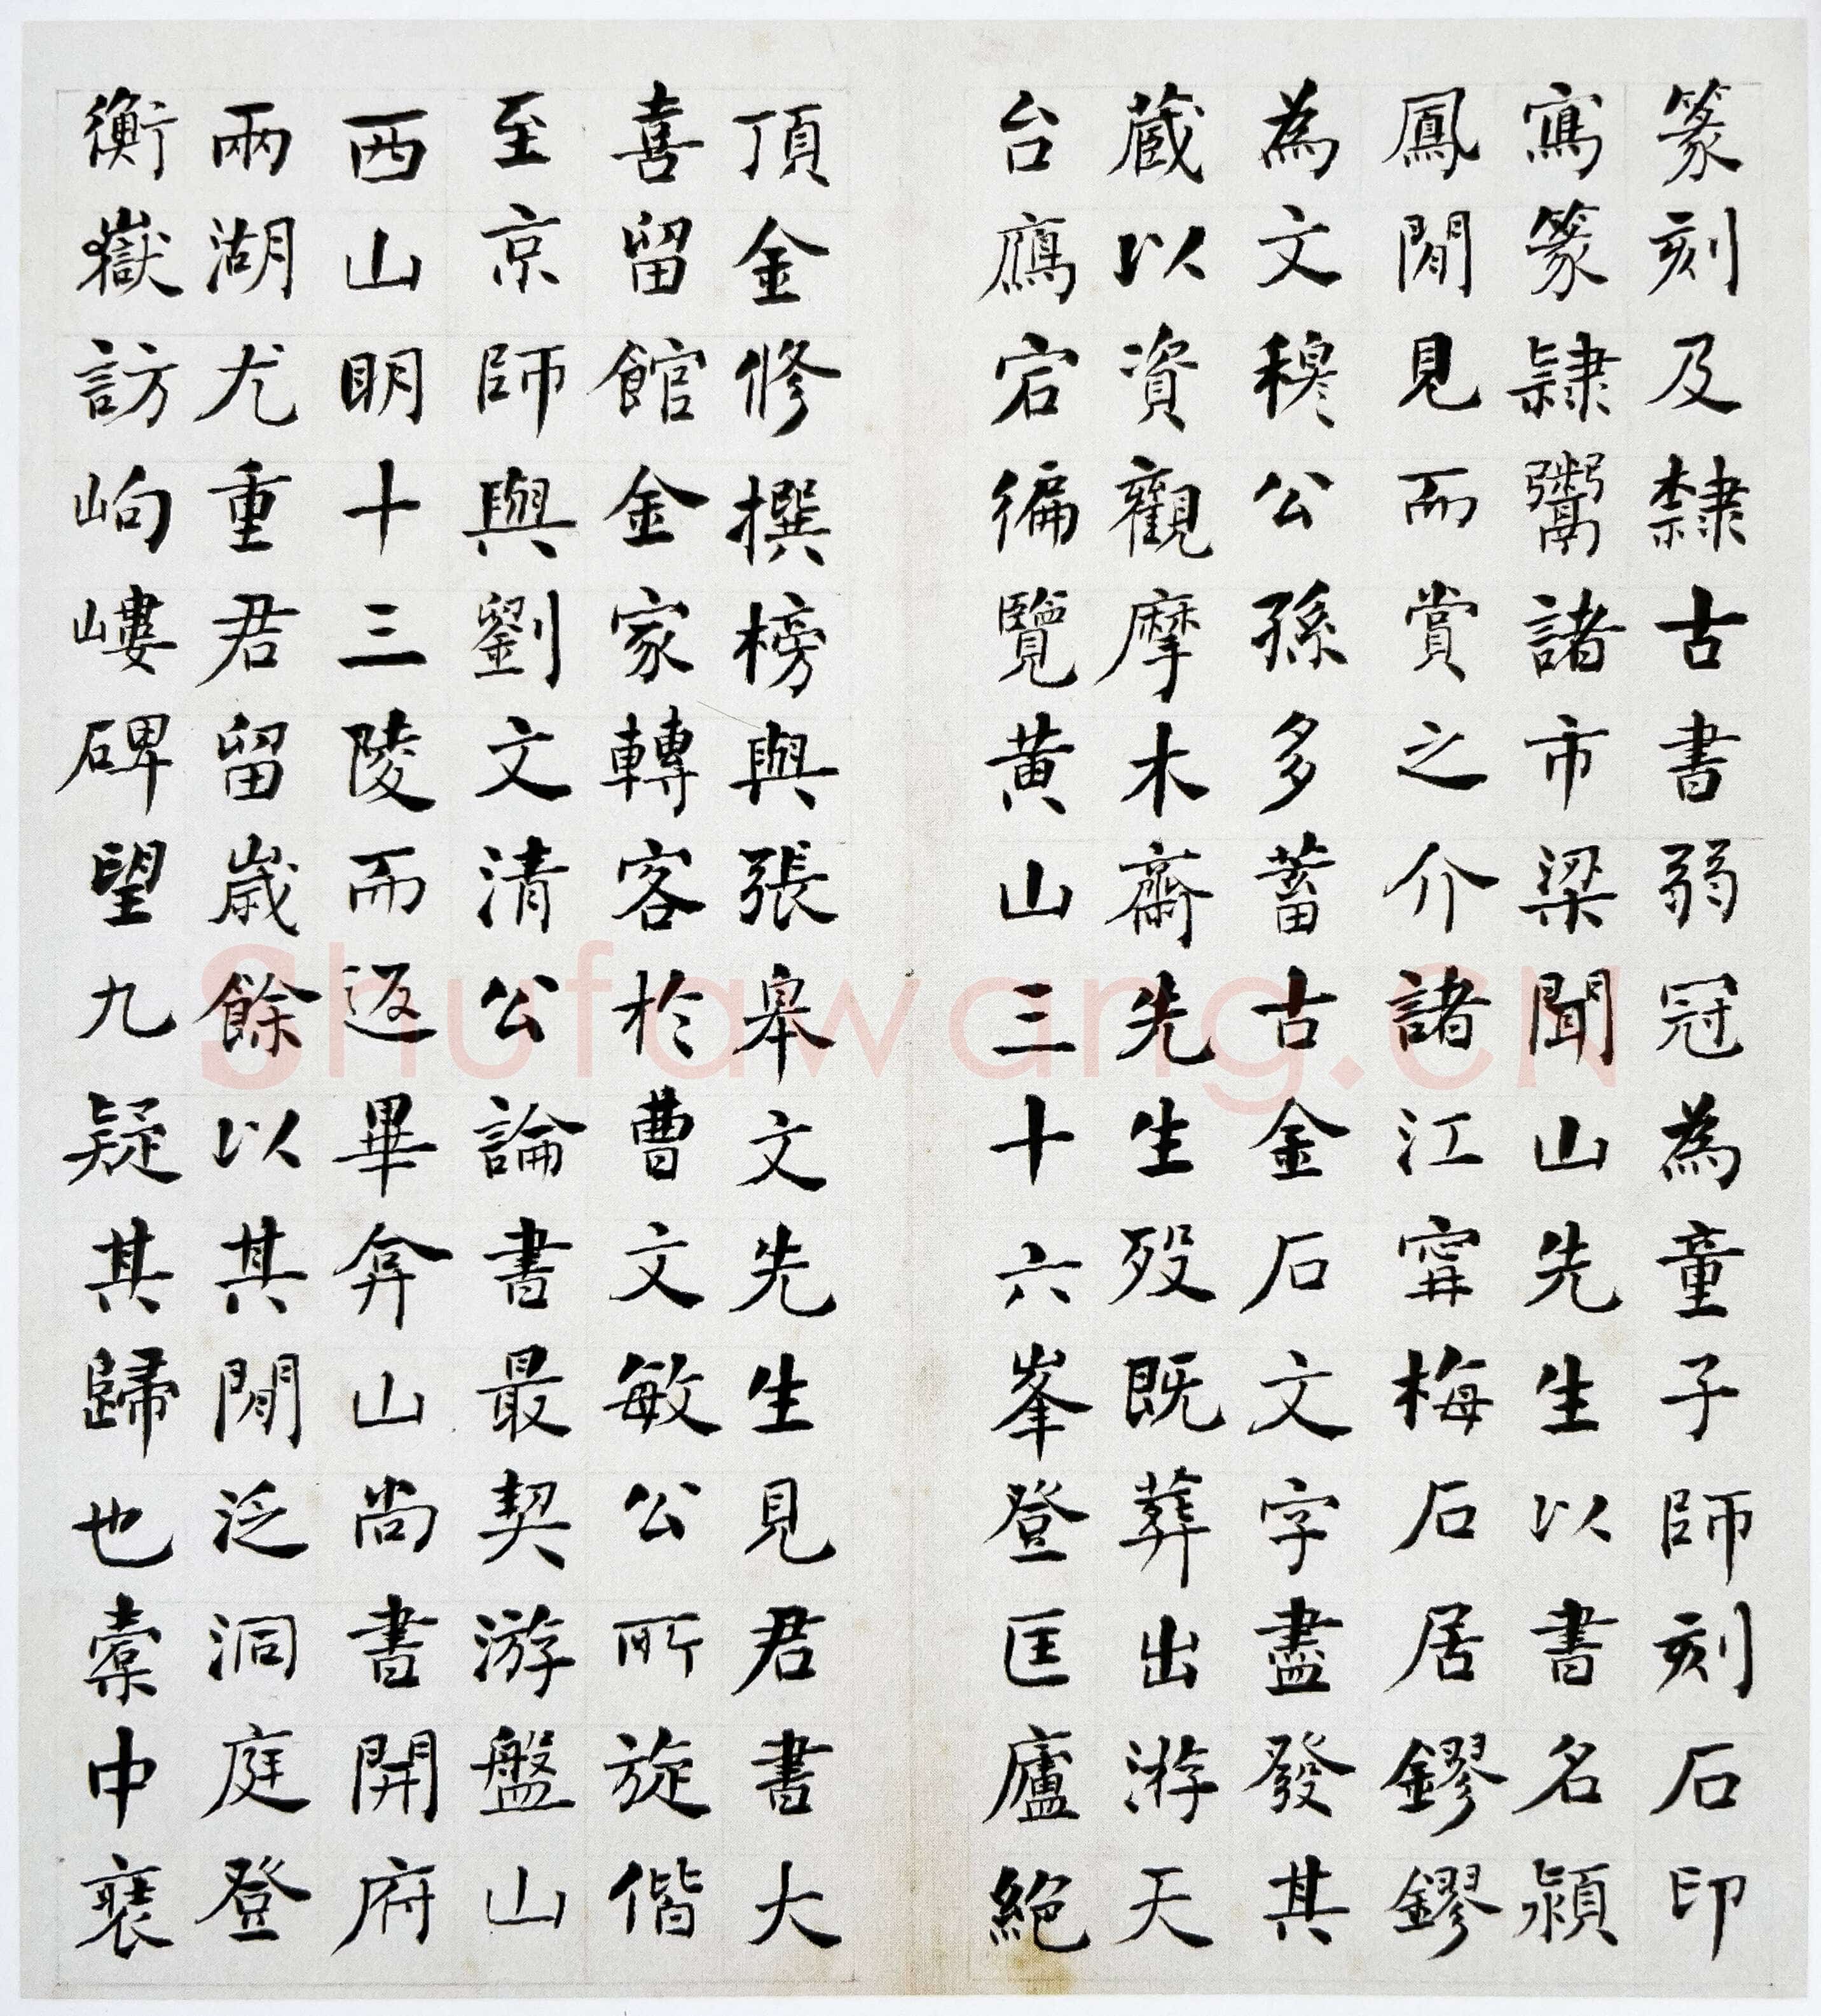 篆刻及隸古書弱冠為童子師刻石印
寫篆隸鬻諸市梁聞山先生以書名潁
鳳閒見而賞之介諸江寗梅石居鏐鏐
為文穆公孫多蓄古金石文字盡發其
藏以資觀摩木齋先生歿既葬出游天
台鴈宕徧覽黄山三十六峯登匡廬絕
頂金修撰榜與張皋文先生見君書大
喜留館金家轉客於曹文敏公所旋偕
至京師與劉文清公論書最契游盤山
西山明十三陵而返畢弇山尚書開府
兩湖尤重君留歲餘以其閒泛洞庭登
衡嶽訪岣嶁碑望九疑其歸也橐中裘
Shufawang.CN